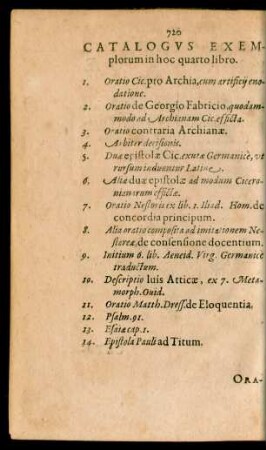 720
CATALOGVS EXEM-
plorum in hoc quarto libro.
1. Oratio Cic. pro Archia, cum artificij eno-
datione.
2. Oratio de Georgio Fabricio quodam-
modo ad Archianam Cic. efficta.
3. Oratio contraria Archianæ.
4. Arbiter decisionis.
5. Duæ epistolæ Cic. Germanicè, vt
rursum induantur Latinè.
6. Aliæ duæ epistolæ ad modum Cicero-
nianarum effictæ.
7. Oratio Nestoris ex lib. 1. Iliad. Hom. de
concordia principum.
8. Alia oratio composita ad imitationem Ne-
storeæ, de consensione docentium.
9. Initium 6. lib. Aeneid. Virg. Germanicè
traductum.
10. Descriptio luis Atticæ, ex 7. Meta-
morph. Ouid.
11. Oratio Matth. Dress. de Eloquentia.
12. Psalm. 91.
13. Esaiæ cap. 1.
14. Epistola Pauli ad Titum.
ORA-